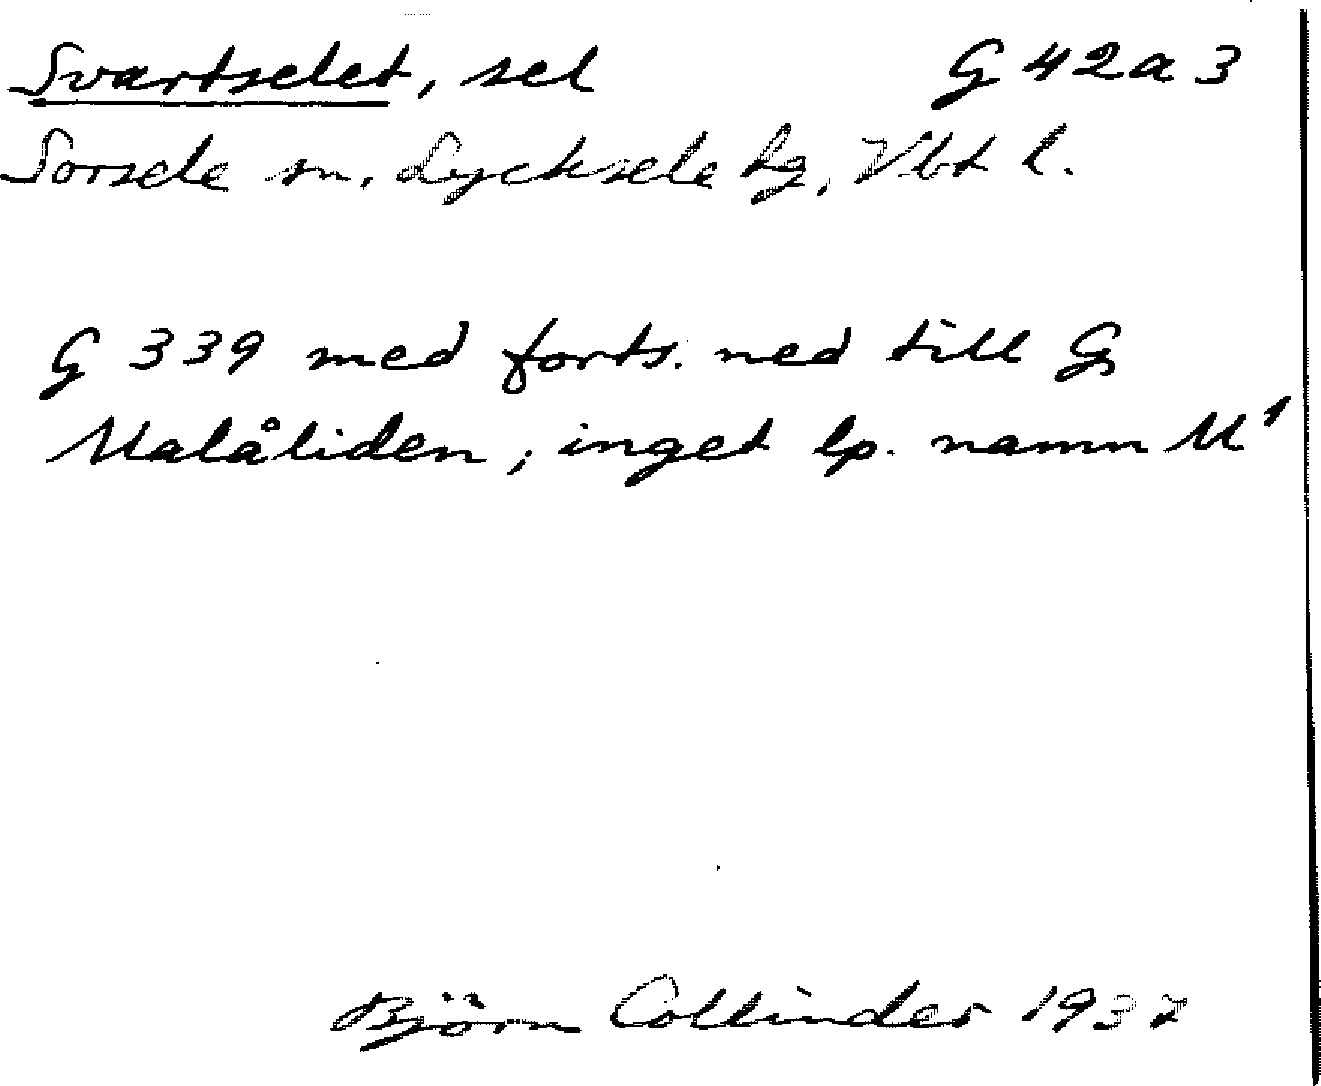 Svartselet, sel G 42a3
Sorsele sn, Lycksele lg, Vbt l.
G 339 med forts. ned till G
Malåliden; inget lp. namn M¹
Björn Collinder 1937